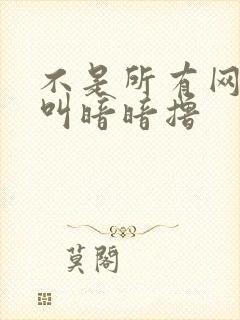 不是所有网
叫暗暗撸
莫閣